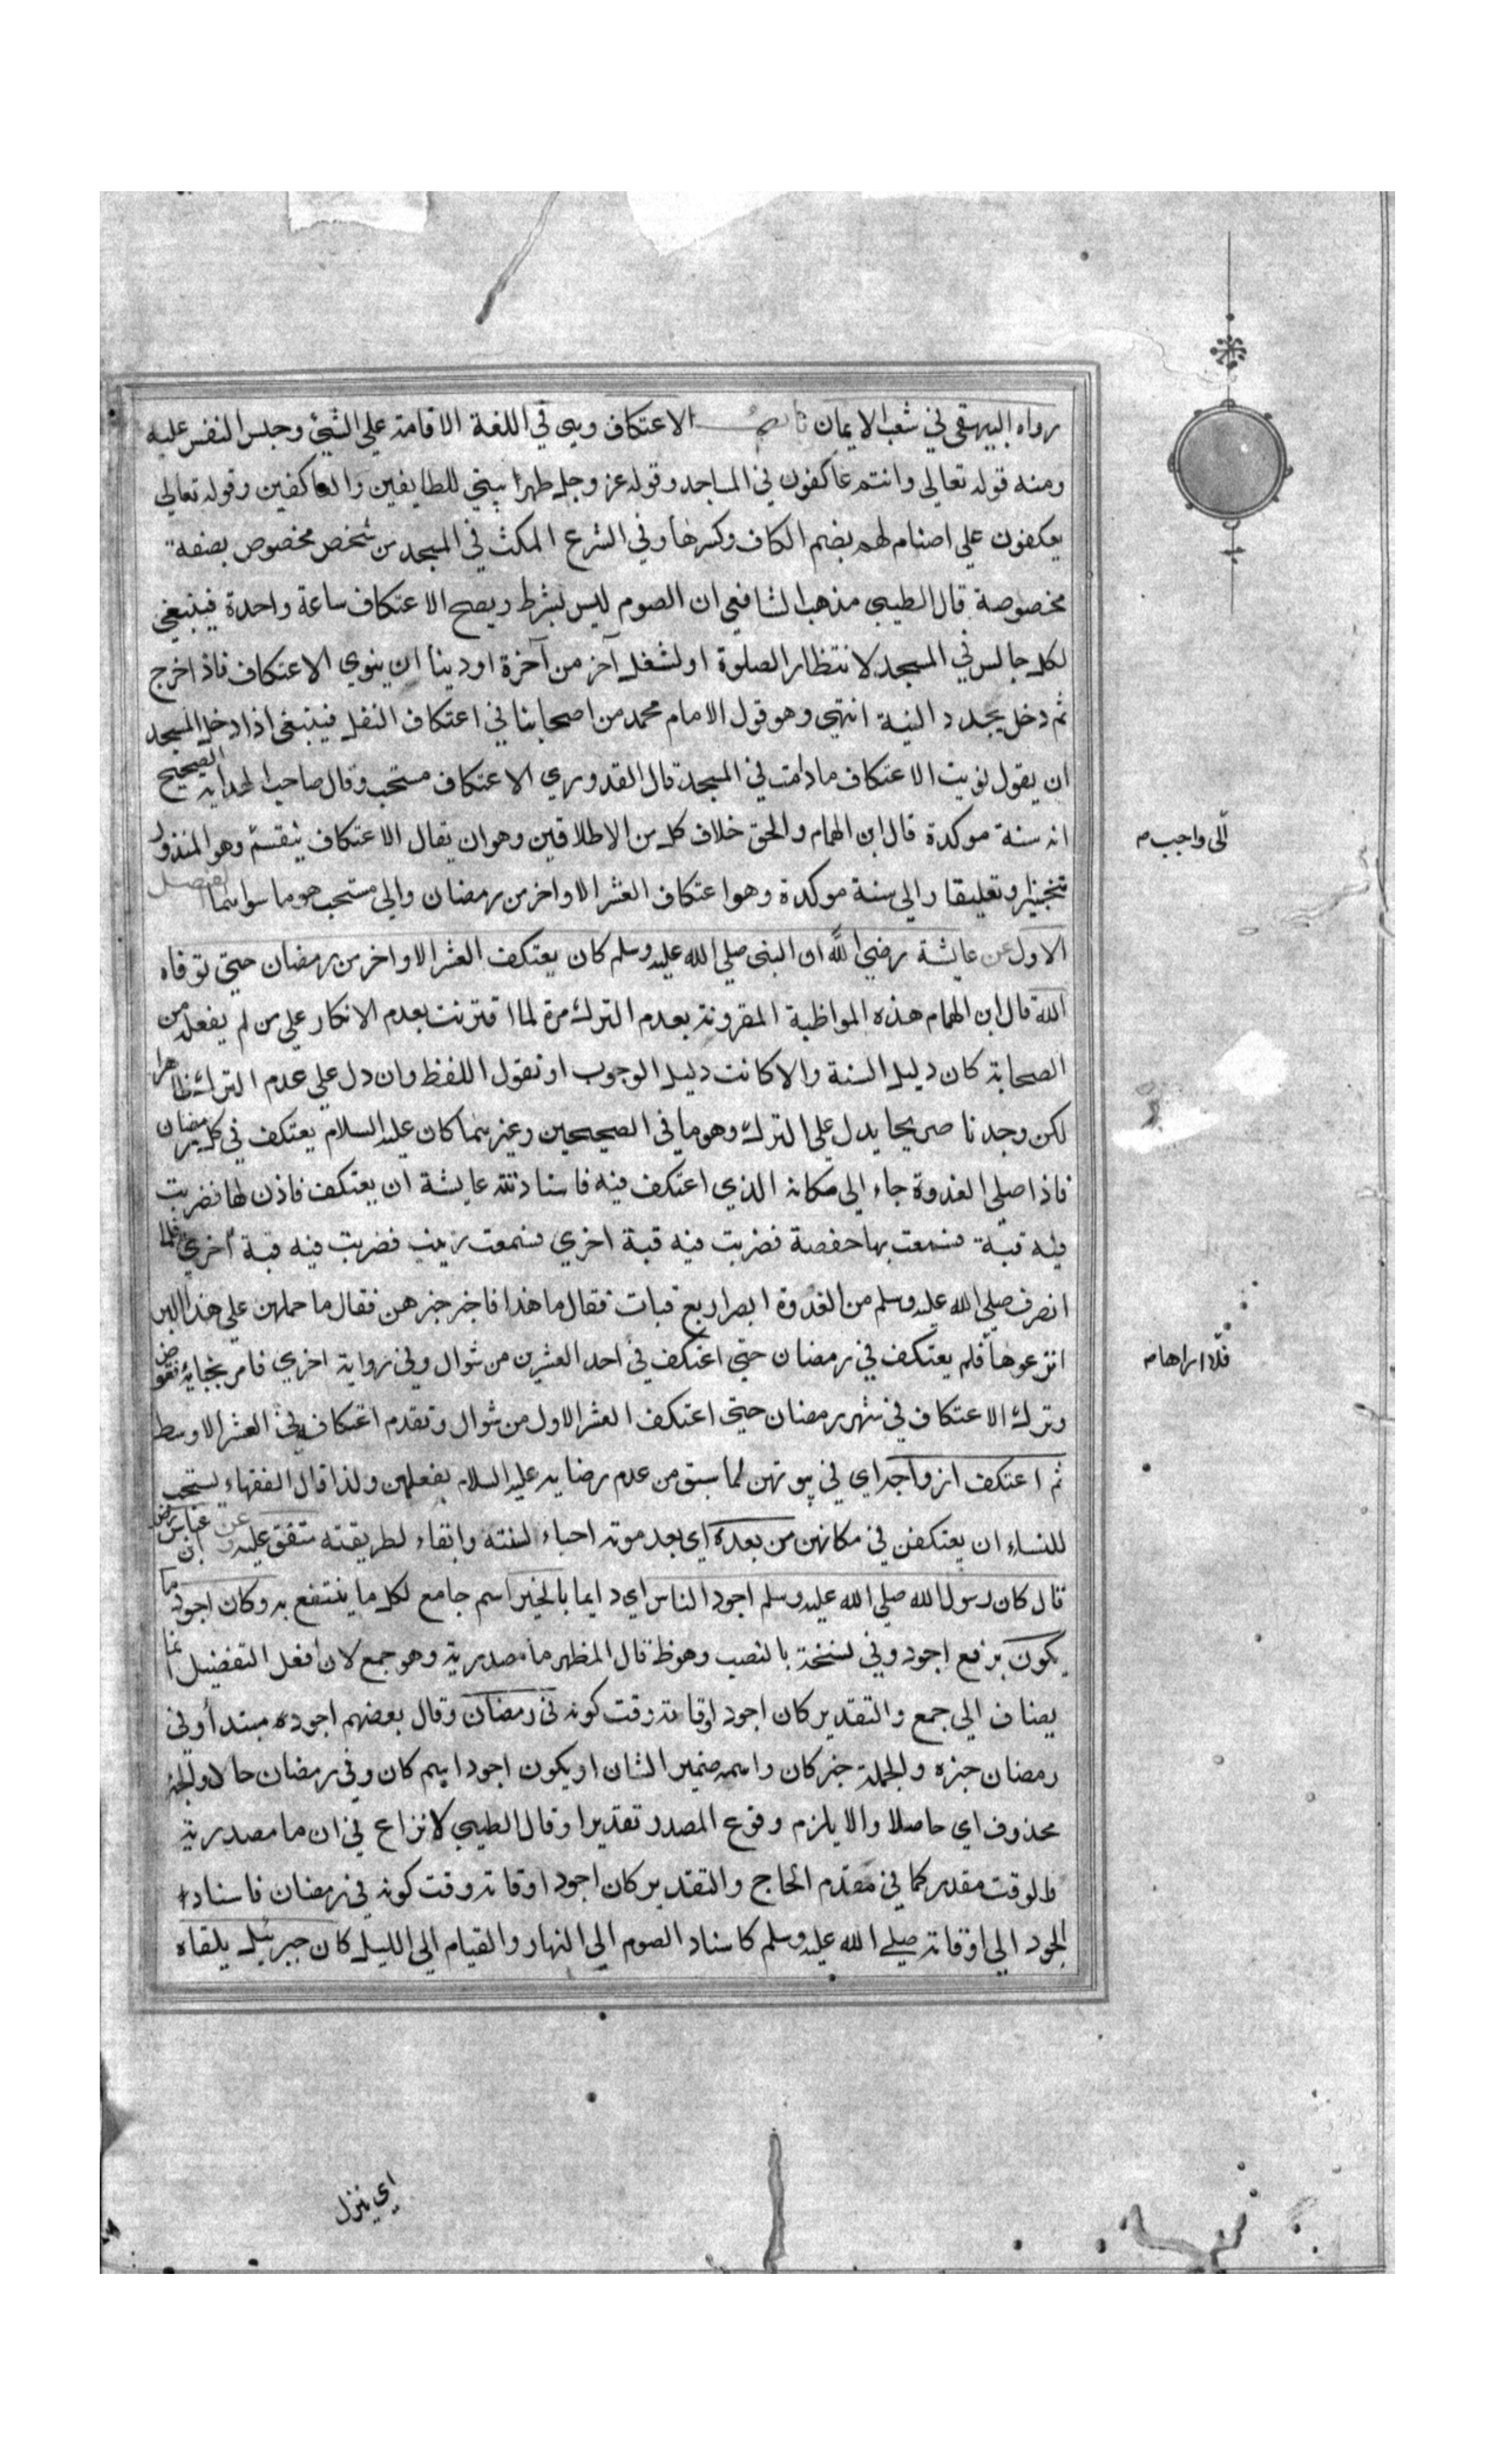 رواه البيهقي في شعب الايمان باب الاعتكاف وهي في اللغة الاقامة علي الشيء وحبس النفس عليه
ومنه قوله تعالي وانتم عاكفون في المساجد وقوله عز وجل طهرا بيتي للطايفين والعاكفين وقوله تعالي
يعكفون علي اصنام لهم بضم الكاف وكسرها وفي الشرع المكث في المسجد من شخص مخصوص بصفة
مخصوصة قال الطيبي مذهب الشافعي ان الصوم ليس بشرط ويصح الاعتكاف ساعة واحدة فينبغي
لكل جالس في المسجد لانتظار الصلوة او لشغل آخر من آخرة او دينا ان ينوي الاعتكاف فاذا خرج
ثم دخل يجدد النية انتهي وهو قول الامام محمد من اصحابنا في اعتكاف النفل فينبغي اذا دخل المسجد
ان يقول نويت الاعتكاف مادمت في المسجد قال القدوري الاعتكاف مستحب وقال صاحب الهداية الصحيح
انه سنة موكدة قال ابن الهمام والحق خلاف كل من الاطلاقين وهو ان يقال الاعتكاف ينقسم وهو المنذور
الي واجب م
تنجيزا وتعليقا والي سنة موكدة وهو اعتكاف العشر الاواخر من رمضان والي مستحب هو ما سواهما الفصل
الاول عن عايشة رضي الله ان النبي صلي الله عليه وسلم كان يعتكف العشر الاواخر من رمضان حتي توفاه
الله قال ابن الهمام هذه المواظبة المقرونة بعدم الترك مرة لما اقترنت بعدم الانكار علي من لم يفعله من
الصحابة كان دليل السنة والا كانت دليل الوجوب او نقول اللفظ وان دل علي عدم الترك ظاهرا
لكن وجدنا صريحا يدل علي الترك وهو ما في الصحيحين وغيرهما كان عليه السلام يعتكف في كل رمضان
فاذا صلي الغدوة جاء الي مكانه الذي اعتكف فيه فاستاذنته عايشة ان يعتكف فاذن لها فضربت
فيه قبة فسمعت بها حفصة فضربت فيه قبة اخري فسمعت زينب فضربت فيه قبة اخري فلما
انصرف صلي الله عليه وسلم من الغدوة ابصر اربع قباب فقال ما هذا فاخبر خبرهن فقال ما حملهن علي هذا البر
انزعوها فلم يعتكف في رمضان حتي اعتكف في احد العشرين من شوال وفي رواية اخري فامر بخبائه فقوض
فلا اراها م
وترك الاعتكاف في شهر رمضان حتي اعتكف العشر الاول من شوال وتقدم اعتكافه في العشر الاوسط
ثم اعتكف ازواجه اي في بيوتهن لما سبق من عدم رضايه عليه السلام بفعلهن ولذا قال الفقهاء يستحب
للنساء ان يعتكفن في مكانهن من بعده اي بعد موته احياء لسنته وابقاء لطريقته متفق عليه وعن ابن عباس رض
قال كان رسول الله صلي الله عليه وسلم اجود الناس اي دايما بالخير اسم جامع لكل ما ينتفع به وكان اجود ما
يكون برفع اجود وفي نسخة بالنصب وهو ظ قال المظهر ما مصدرية وهو جمع لان افعل التفضيل انما
يضاف الي جمع والتقدير كان اجود اوقاته وقت كونه في رمضان وقال بعضهم اجوده مبتدأ وفي
رمضان خبره والجملة خبر كان واسمه ضمير الشان او يكون اجود اسم كان وفي رمضان حالا والخبر
محذوف اي حاصلا والا يلزم وقوع المصدر تقديرا وقال الطيبي لا نزاع في ان ما مصدرية
والوقت مقدر كما في مقدم الحاج والتقدير كان اجود اوقاته وقت كونه في رمضان فاسناد
الجود الي اوقاته صلي الله عليه وسلم كاسناد الصوم الي النهار والقيام الي الليل كان جبرئيل يلقاه
اي ينزل